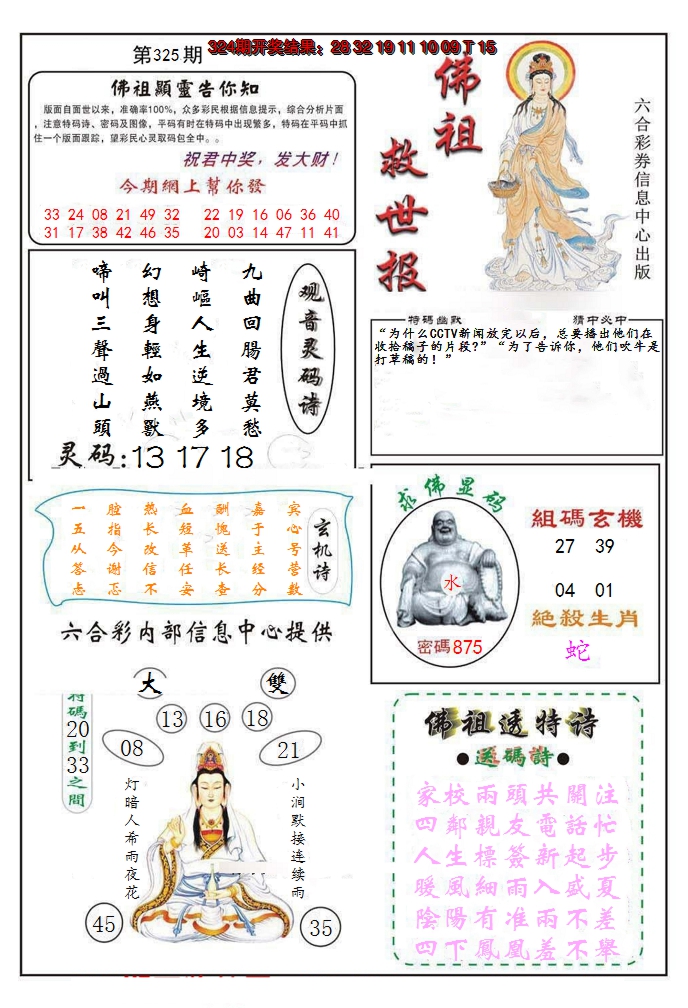 第325期
324期开奖结果：28 32 19 11 10 09 T 15
佛祖顯靈告你知
版面自面世以来，准确率100%，众多彩民根据信息提示，综合分析片面
，注意特码诗、密码及图像，平码有时在特码中出现繁多，特码在平码中抓
住一个版面跟踪，望彩民心灵取码包全中。。
祝君中奖，发大财！
今期網上幫你發
33 24 08 21 49 32 22 19 16 06 36 40
31 17 38 42 46 35 20 03 14 47 11 41
佛祖
救世报
六合彩券信息中心出版
观音灵码诗
九曲回腸君莫愁
崎嶇人生逆境多
幻想身輕如燕獸
啼叫三聲過山頭
灵码:13 17 18
特碼幽默
猜中必中
“为什么CCTV新闻放完以后，总要播出他们在
收拾稿子的片段?”“为了告诉你，他们吹牛是
打草稿的！”
玄机诗
宾心号营数
嘉于主经分
酬愧送长查
血经革任安
热长改信不
脸指今谢忘
一五从答虑
六合彩内部信息中心提供
求佛显码
水
密碼875
組碼玄機
27 39
04 01
絶殺生肖
蛇
大
雙
特碼20到33之間
13
16
18
08
21
灯暗人希雨夜花
小涧默接连续雨
45
35
佛祖透特诗
●送碼詩●
家校兩頭共關注
四鄰親友電話忙
人生標簽新起步
暖風細雨入盛夏
陰陽有准兩不差
四下鳳凰羞不舉